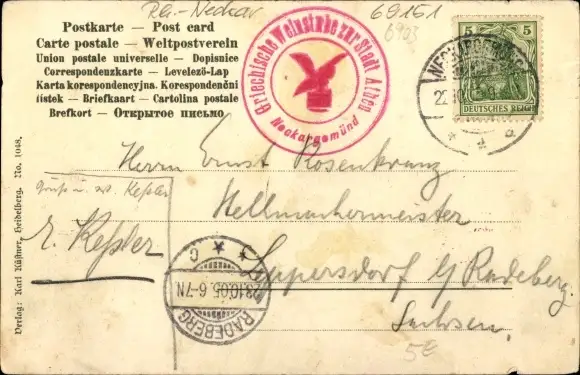 Postkarte — Post card
Carte postale — Weltpostverein
Union postale universelle — Dopisnice
Correspondenzkarte — Levelező-Lap
Karta korespondencyjna. Korespondenční
lístek — Briefkaart — Cartolina postale
Brefkort — Открытое письмо
69151
6903
Griechische Weinstube zur Stadt Athen
Neckargemünd
5 5
DEUTSCHES REICH
Herrn Ernst Rosenkranz
Hellmachermeister
Leppersdorf b/ Radeberg
Sachsen
Gruss u. Kessler
E. Kessler
RADEBERG
23.10.05. 6-7N.
C
5E
Verlag: Karl Kästner, Heidelberg. No. 1048.